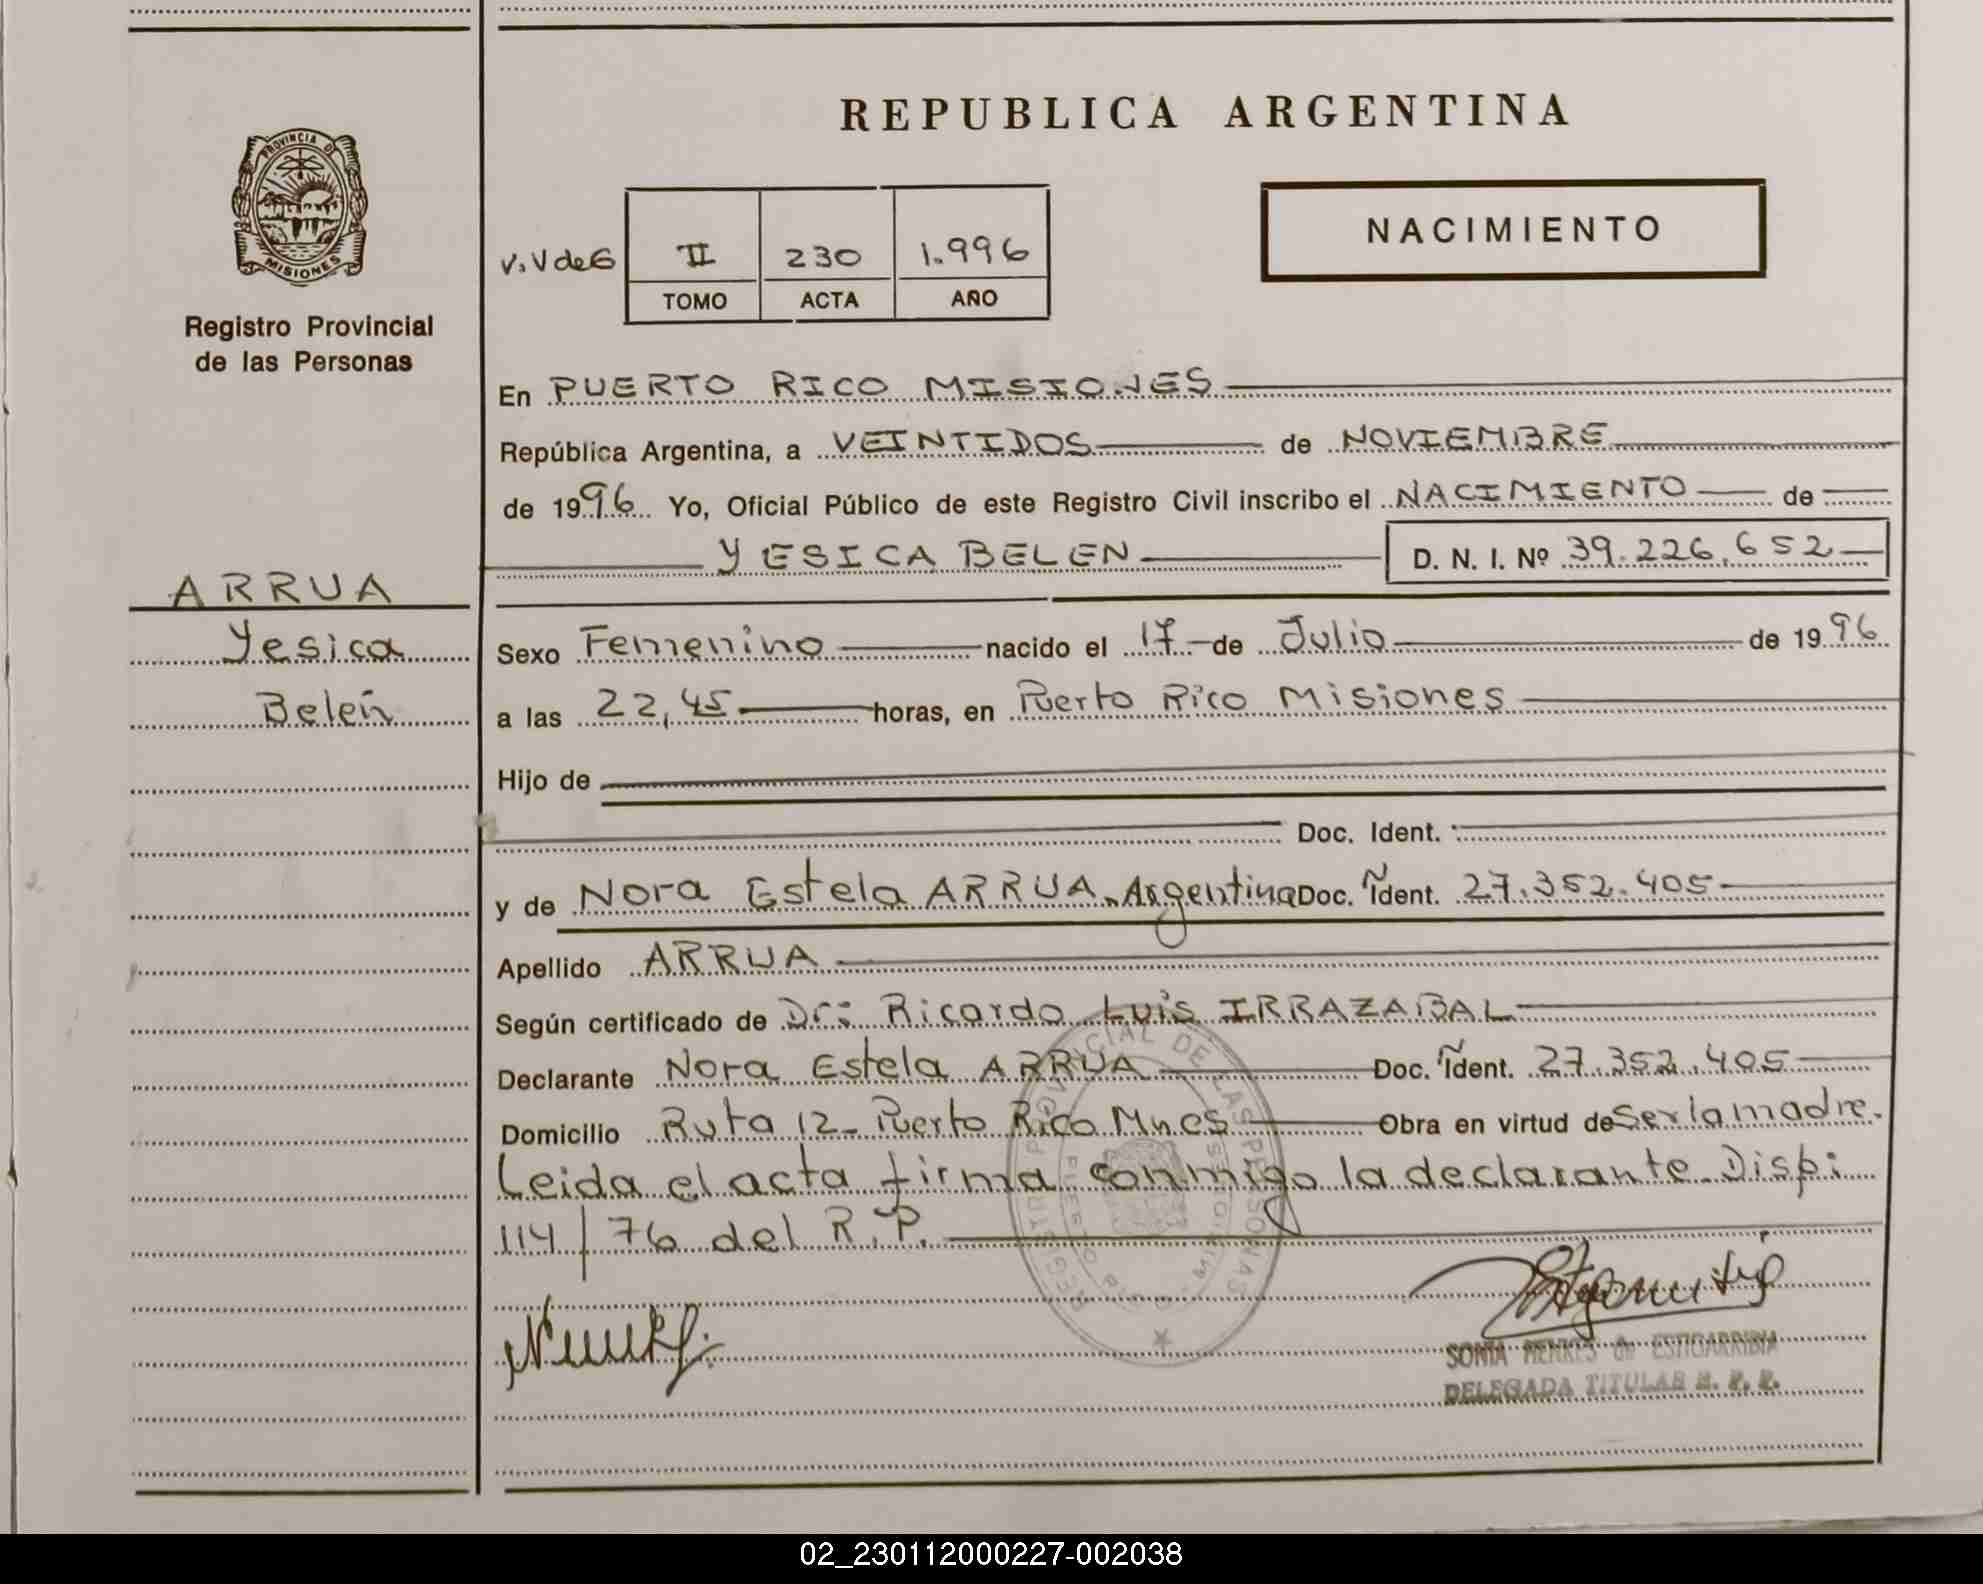 PROVINCIA DE
MISIONES
Registro Provincial
de las Personas
REPUBLICA ARGENTINA
NACIMIENTO
V.V de G II 230 1.996
TOMO ACTA AÑO
En PUERTO RICO MISIONES
República Argentina, a VEINTIDOS de NOVIEMBRE
de 1996 Yo, Oficial Público de este Registro Civil inscribo el NACIMIENTO de
YESICA BELEN D. N. I. Nº 39.226.652
ARRUA
Yesica
Belén
Sexo Femenino nacido el 17 de Julio de 1996
a las 22,45 horas, en Puerto Rico Misiones
Hijo de
Doc. Ident.
y de Nora Estela ARRUA. Argentina Doc. Ident. 27.352.405
Apellido ARRUA
Según certificado de Dr: Ricardo Luis IRRAZABAL
Declarante Nora Estela ARRUA Doc. Ident. 27.352.405
Domicilio Ruta 12 - Puerto Rico Mnes Obra en virtud de Ser la madre.
Leida el acta firma conmigo la declarante. Disp:
114/76 del R.P.
REGISTRO PROVINCIAL DE LAS PERSONAS
PUERTO RICO MISIONES
SONIA HENKES de ESTIGARRIBIA
DELEGADA TITULAR R. P. P.
02_230112000227-002038